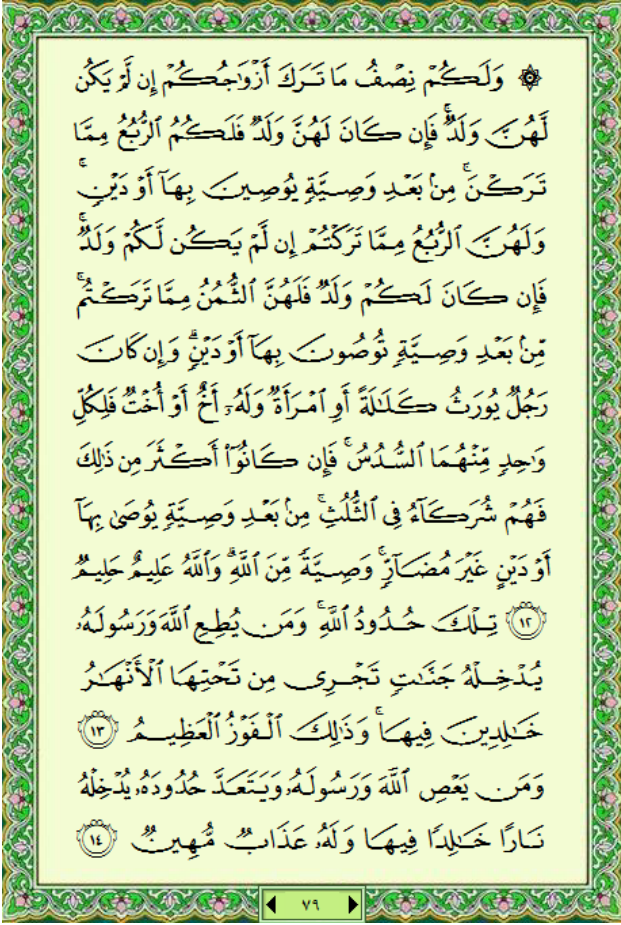 ۞ وَلَكُمْ نِصْفُ مَا تَرَكَ أَزْوَٰجُكُمْ إِن لَّمْ يَكُن
لَّهُنَّ وَلَدٌ ۚ فَإِن كَانَ لَهُنَّ وَلَدٌ فَلَكُمُ ٱلرُّبُعُ مِمَّا
تَرَكْنَ ۚ مِنۢ بَعْدِ وَصِيَّةٍ يُوصِينَ بِهَآ أَوْ دَيْنٍ ۚ
وَلَهُنَّ ٱلرُّبُعُ مِمَّا تَرَكْتُمْ إِن لَّمْ يَكُن لَّكُمْ وَلَدٌ ۚ
فَإِن كَانَ لَكُمْ وَلَدٌ فَلَهُنَّ ٱلثُّمُنُ مِمَّا تَرَكْتُم ۚ
مِّنۢ بَعْدِ وَصِيَّةٍ تُوصُونَ بِهَآ أَوْ دَيْنٍ ۗ وَإِن كَانَ
رَجُلٌ يُورَثُ كَلَٰلَةً أَوِ ٱمْرَأَةٌ وَلَهُۥٓ أَخٌ أَوْ أُخْتٌ فَلِكُلِّ
وَٰحِدٍ مِّنْهُمَا ٱلسُّدُسُ ۚ فَإِن كَانُوٓا۟ أَكْثَرَ مِن ذَٰلِكَ
فَهُمْ شُرَكَآءُ فِى ٱلثُّلُثِ ۚ مِنۢ بَعْدِ وَصِيَّةٍ يُوصَىٰ بِهَآ
أَوْ دَيْنٍ غَيْرَ مُضَآرٍّ ۚ وَصِيَّةً مِّنَ ٱللَّهِ ۗ وَٱللَّهُ عَلِيمٌ حَلِيمٌ
﴿١٢﴾ تِلْكَ حُدُودُ ٱللَّهِ ۚ وَمَن يُطِعِ ٱللَّهَ وَرَسُولَهُۥ
يُدْخِلْهُ جَنَّٰتٍ تَجْرِى مِن تَحْتِهَا ٱلْأَنْهَٰرُ
خَٰلِدِينَ فِيهَا ۚ وَذَٰلِكَ ٱلْفَوْزُ ٱلْعَظِيمُ ﴿١٣﴾
وَمَن يَعْصِ ٱللَّهَ وَرَسُولَهُۥ وَيَتَعَدَّ حُدُودَهُۥ يُدْخِلْهُ
نَارًا خَٰلِدًا فِيهَا وَلَهُۥ عَذَابٌ مُّهِينٌ ﴿١٤﴾
٧٩